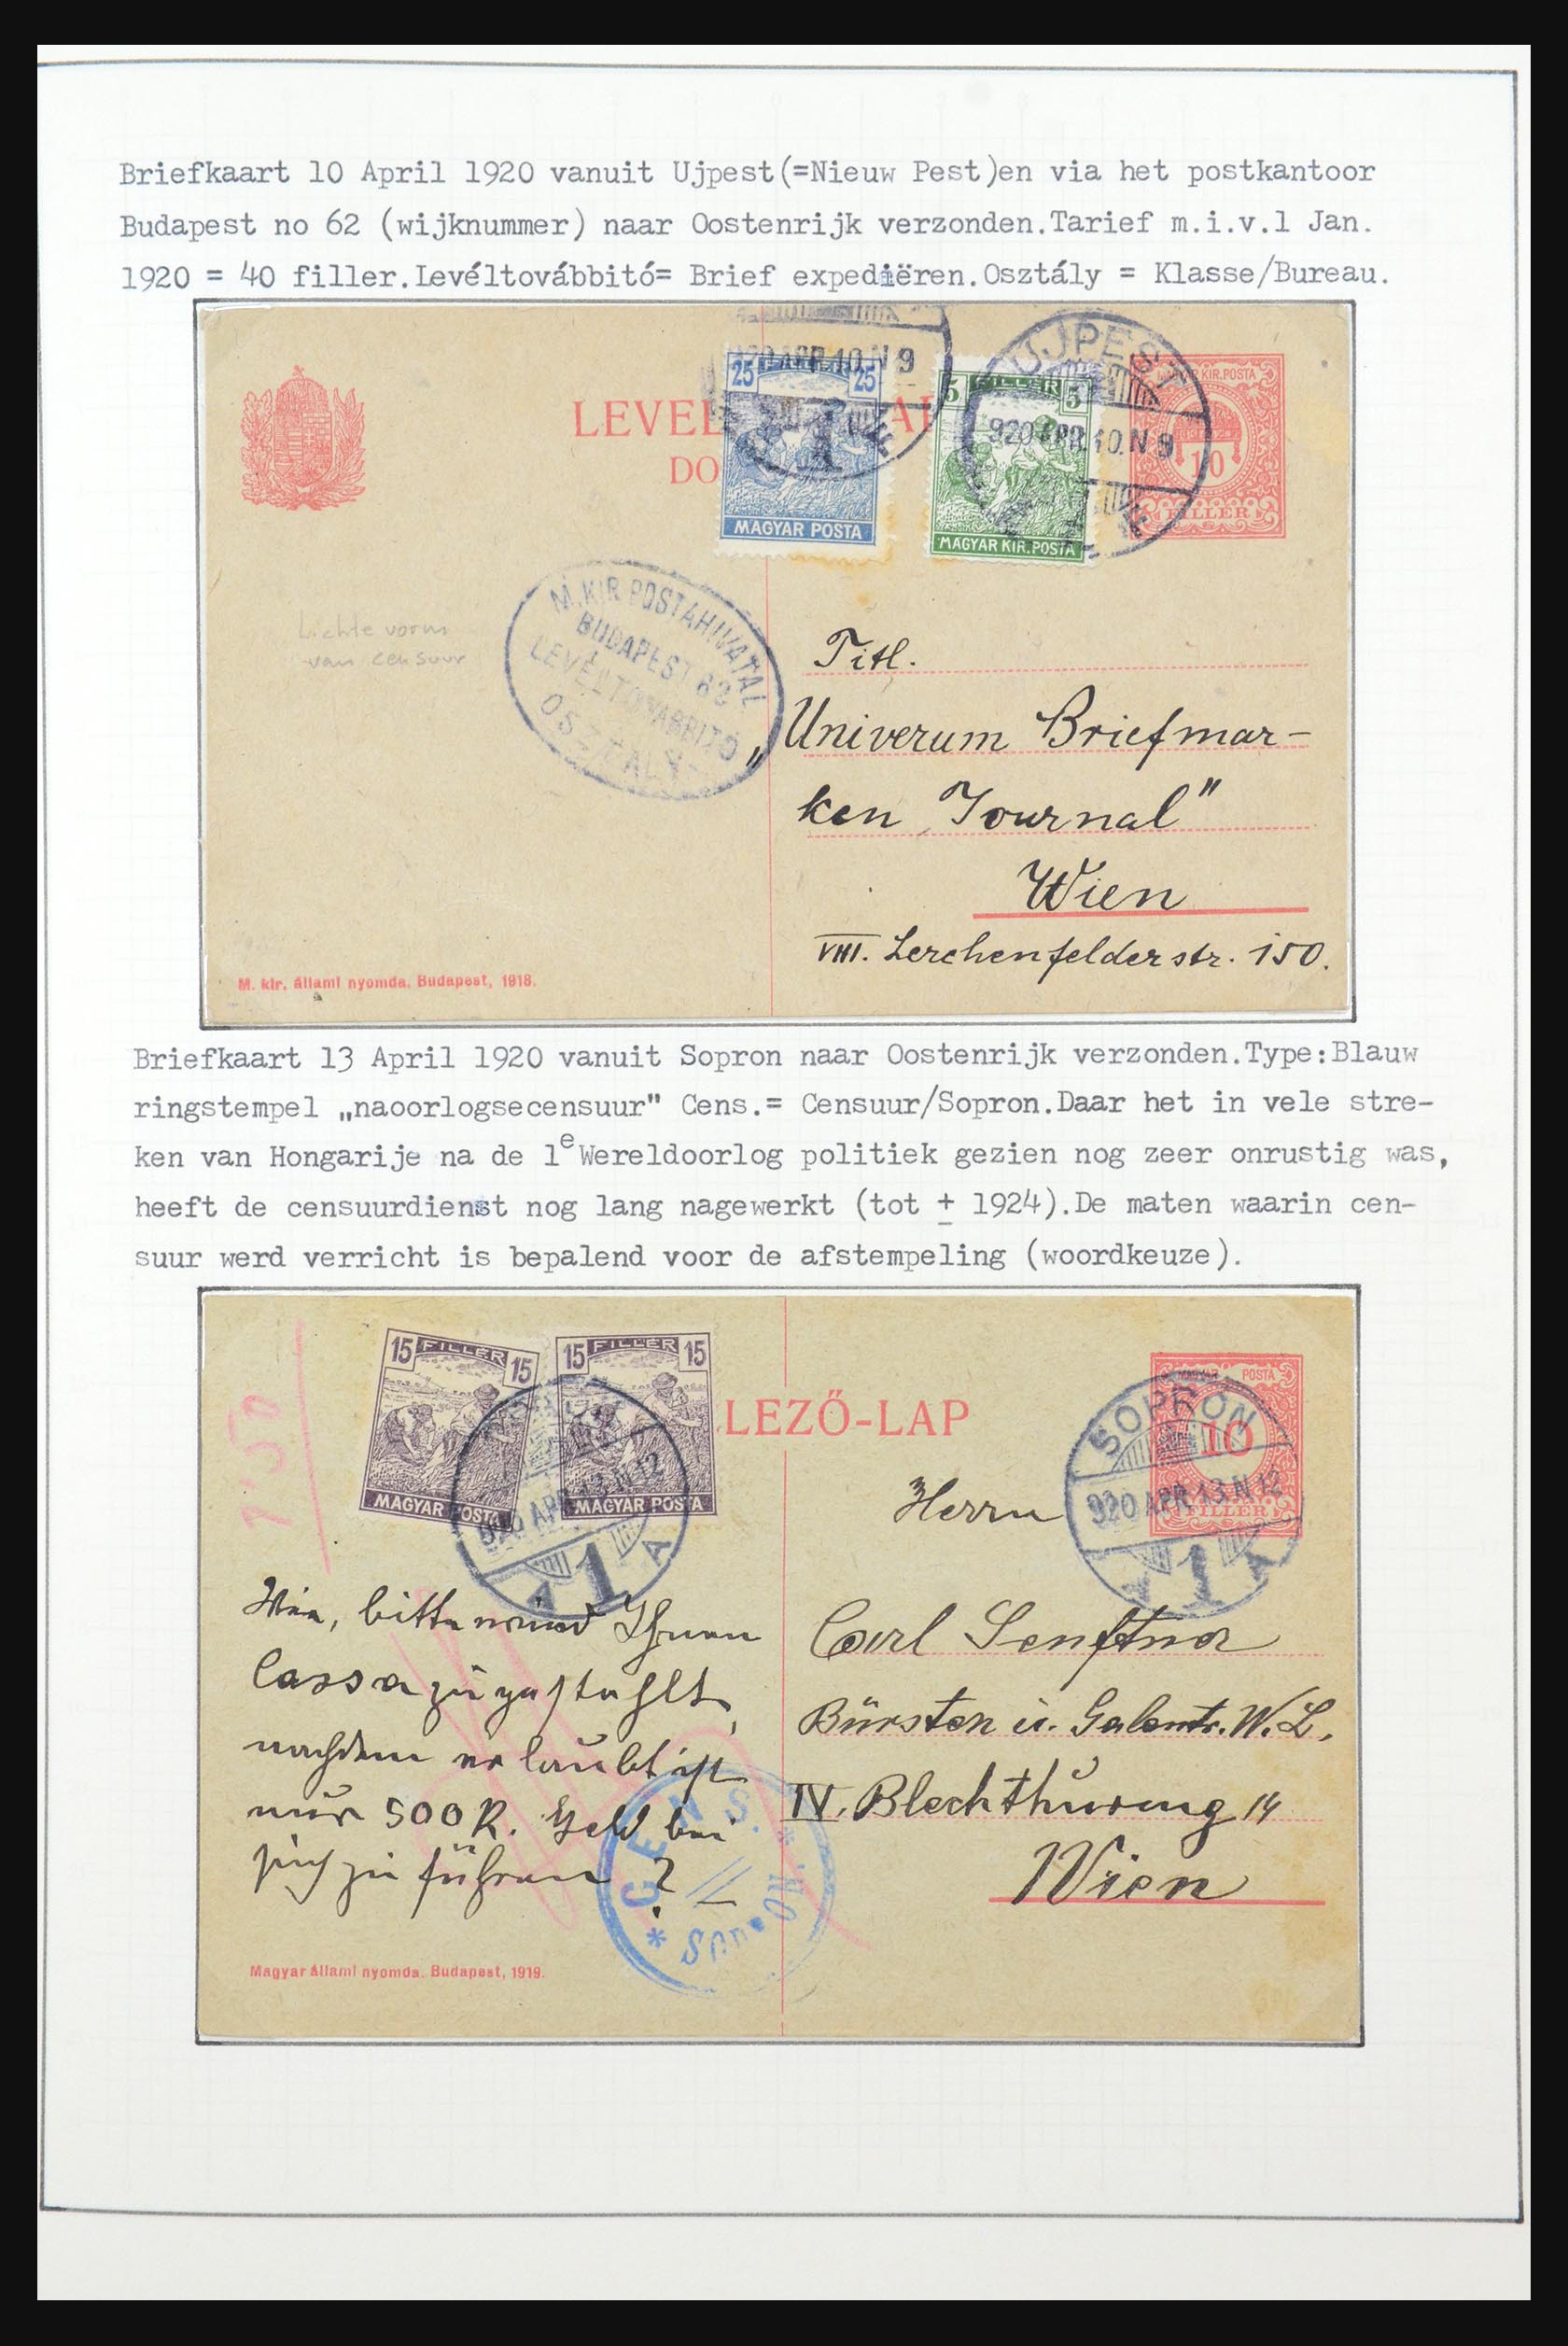 Briefkaart 10 April 1920 vanuit Ujpest(=Nieuw Pest)en via het postkantoor
Budapest no 62 (wijknummer) naar Oostenrijk verzonden.Tarief m.i.v.1 Jan.
1920 = 40 filler.Levéltovábbitó= Brief expediëren.Osztály = Klasse/Bureau.
920 APR.10.N 9
25 FILLER 25
MAGYAR POSTA
5 FILLER 5
MAGYAR KIR.POSTA
UJPEST
920 APR.10.N 9
MAGYAR KIR.POSTA
10
FILLER
LEVEL
DO
M.KIR.POSTAHIVATAL
BUDAPEST 62
LEVÉLTOVÁBBITÓ
OSZTÁLY
Lichte vorm
van censuur
Titl.
„Univerum Briefmar-
ken Journal"
Wien
VIII. Lerchenfelderstr. 150.
M. kir. állami nyomda. Budapest, 1918.
Briefkaart 13 April 1920 vanuit Sopron naar Oostenrijk verzonden.Type:Blauw
ringstempel „naoorlogsecensuur" Cens.= Censuur/Sopron.Daar het in vele stre-
ken van Hongarije na de 1e Wereldoorlog politiek gezien nog zeer onrustig was,
heeft de censuurdienst nog lang nagewerkt (tot ± 1924).De maten waarin cen-
suur werd verricht is bepalend voor de afstempeling (woordkeuze).
15 FILLER 15
MAGYAR POSTA
15 FILLER 15
MAGYAR POSTA
920 APR.13.N 12
A 1 A
LEZŐ-LAP
MAGYAR POSTA
10
FILLER
SOPRON
920 APR.13.N 12
1
Herrn
Carl Senftner
Bürsten u. Galantr. W. L.
IV. Blechthurmg 14
Wien
Wie, bitte wird Ihnen
Cassa zugestellt,
nachdem erlaubt ist
nur 500 K. Geld bei
sich zu führen ?
Magyar állami nyomda. Budapest, 1919.